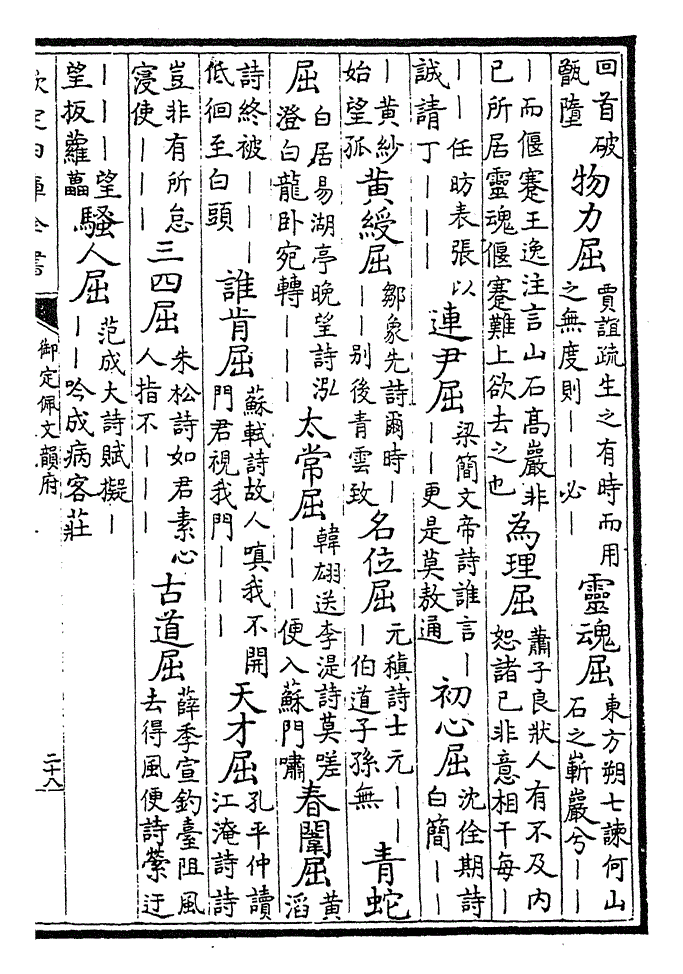 回首破甑墮物力屈賈誼疏生之有時而用之無度則｜｜必｜靈魂屈東方朔七諫何山石之嶄巖兮｜｜
｜而偃蹇王逸注言山石高巖非已所居靈魂偃蹇難上欲去之也為理屈蕭子良狀人有不及内恕諸已非意相干每｜｜
｜｜任昉表張以誠請丁｜｜｜連尹屈梁簡文帝詩誰言｜｜｜更是莫敖通初心屈沈佺期詩白簡｜｜
｜黃紗始望孤黃綬屈鄒象先詩爾時｜｜｜别後青雲致名位屈元稹詩士元｜｜｜伯道子孫無青蛇
屈白居易湖亭晚望詩泓澄白龍卧宛轉｜｜｜太常屈韓翃送李湜詩莫嗟｜｜｜便入蘇門嘯春闈屈黃滔
詩終被｜｜｜低徊至白頭誰肯屈蘇軾詩故人嗔我不開門君視我門｜｜｜天才屈孔平仲讀江淹詩詩
豈非有所怠寖使｜｜｜三四屈朱松詩如君素心人指不｜｜｜古道屈薛季宣釣臺阻風去得風便詩縈迂
｜｜｜望望扳蘿藟騷人屈范成大詩賦擬｜｜｜吟成病客莊
欽定四庫全書
御定佩文韻府
二十八